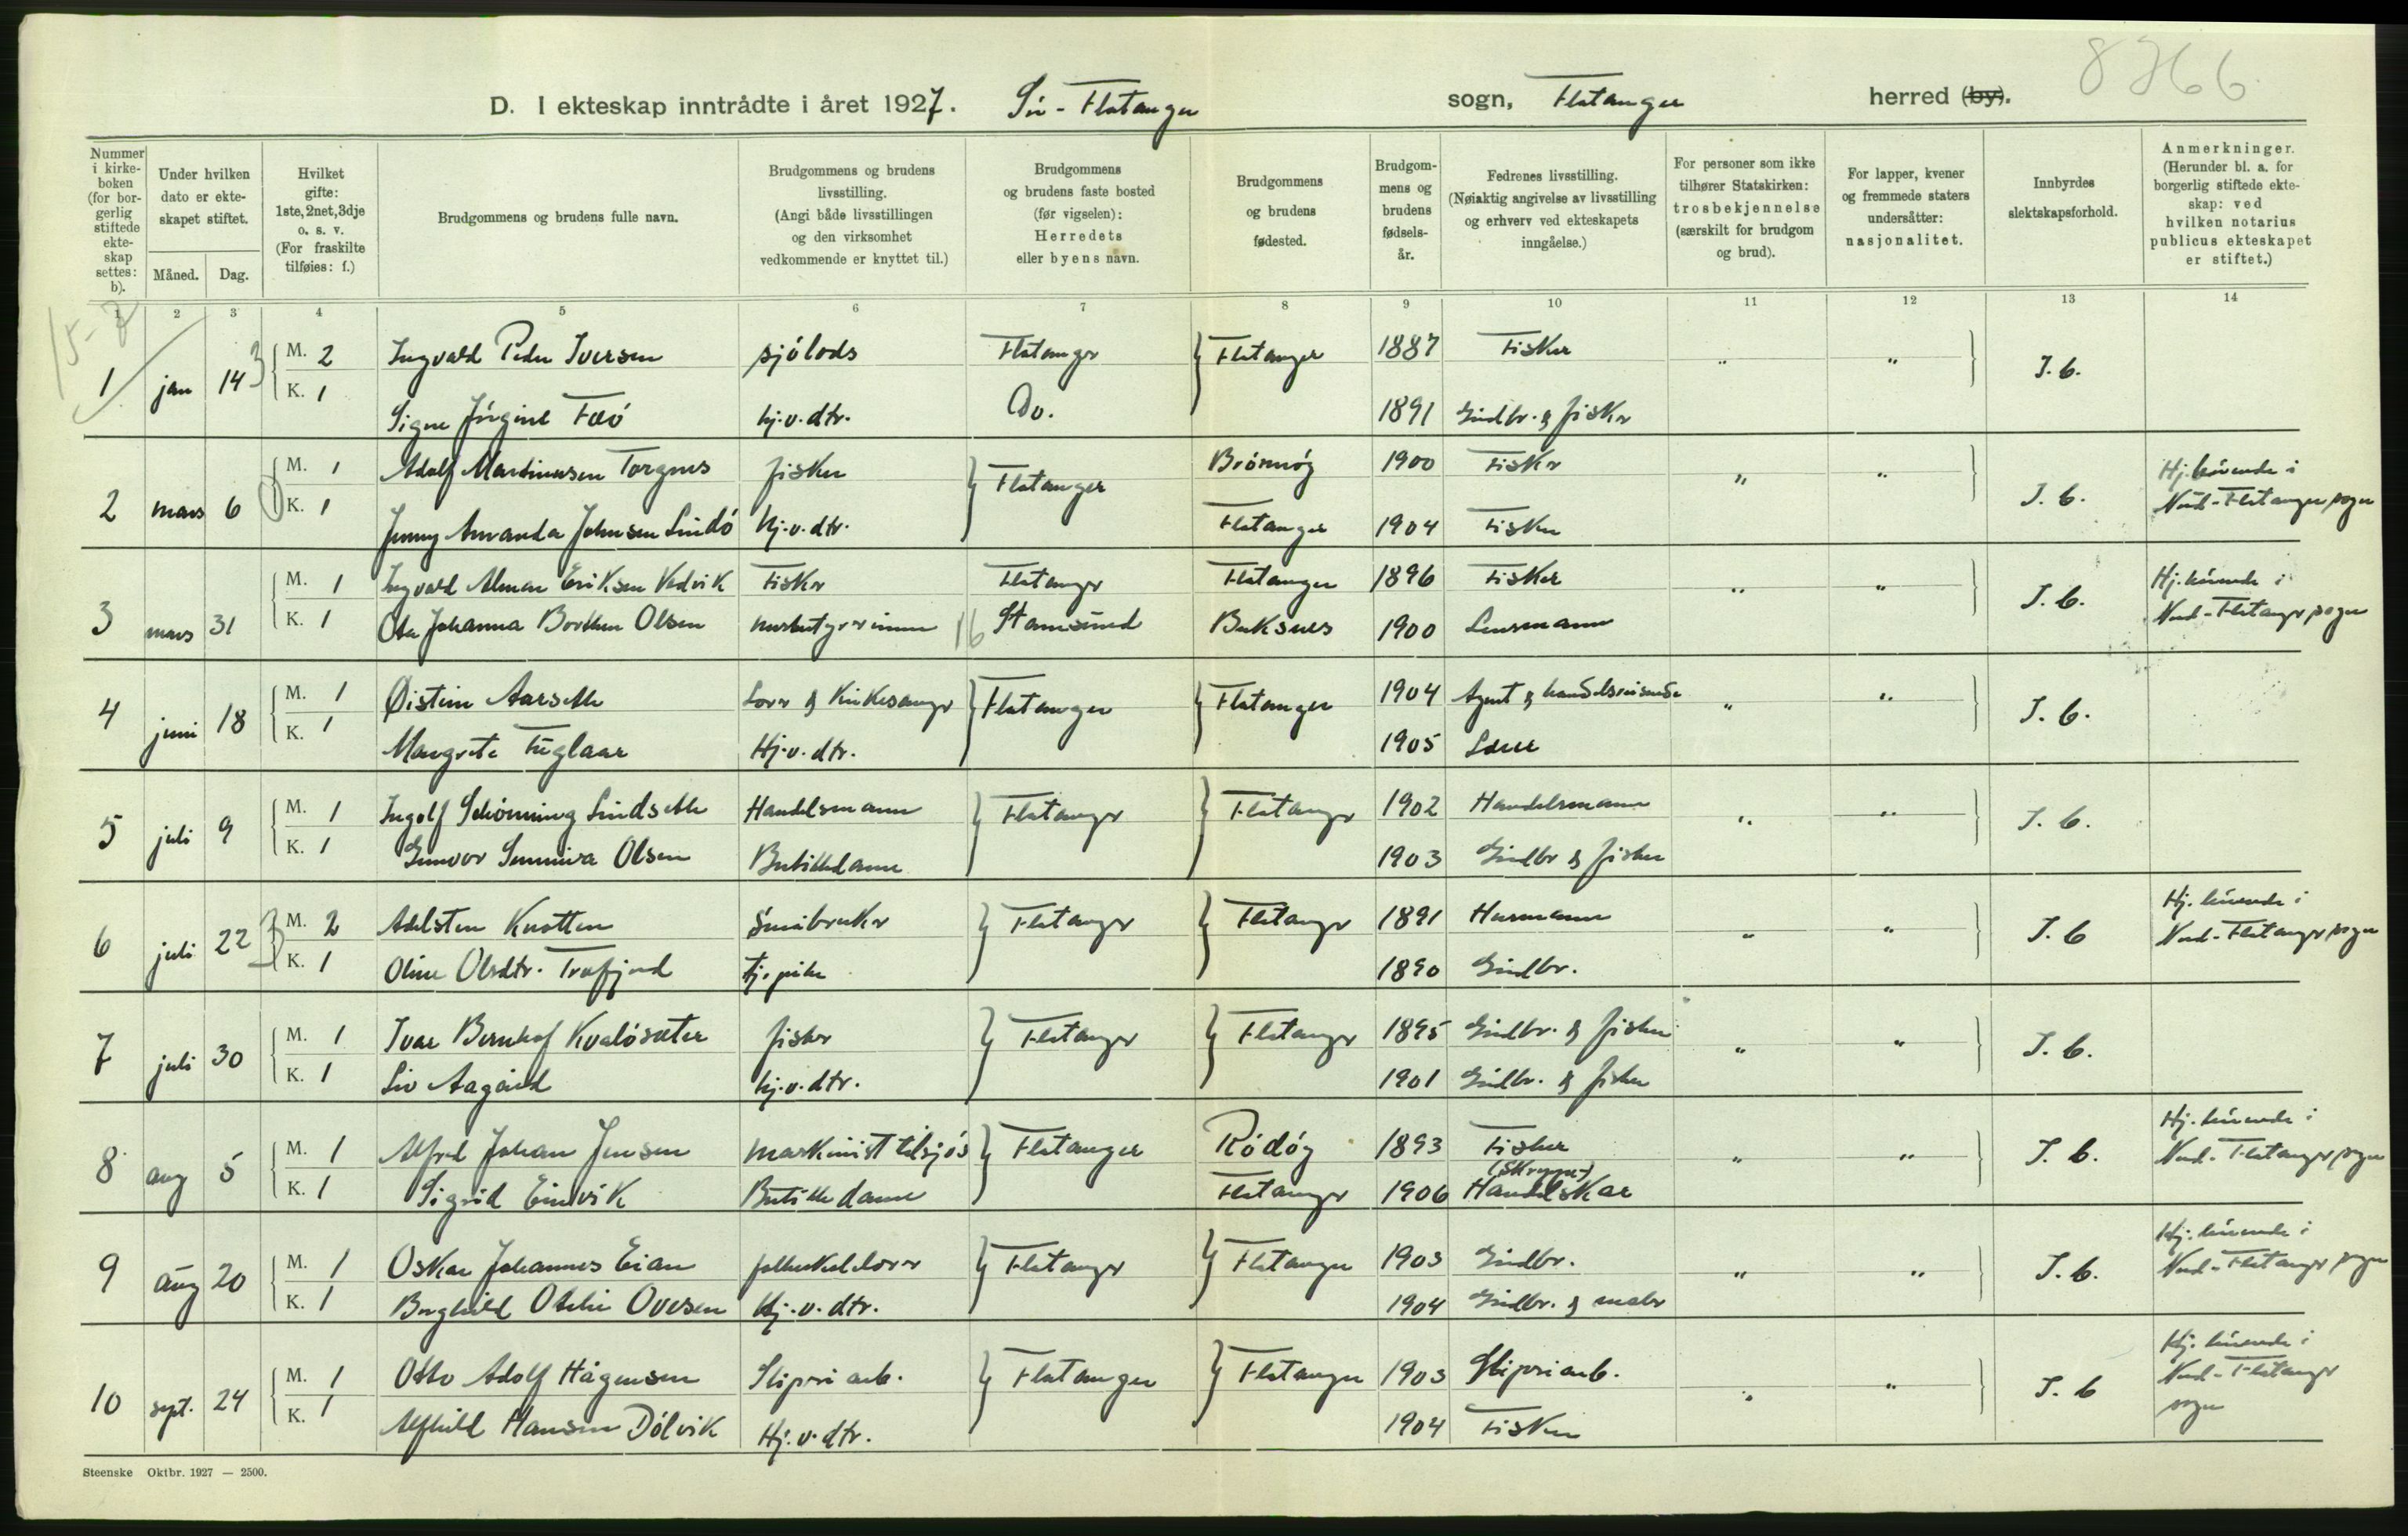 8766
D. I ekteskap inntrådte i året 1927. Sør-Flatanger sogn, Flatanger herred (by).
Nummer i kirkeboken (for borgerlig stiftede ekteskap settes: b).
Under hvilken dato er ekteskapet stiftet.
Måned. Dag.
Hvilket gifte: 1ste, 2net, 3dje o. s. v. (For fraskilte tilføies: f.)
Brudgommens og brudens fulle navn.
Brudgommens og brudens livsstilling. (Angi både livsstillingen og den virksomhet vedkommende er knyttet til.)
Brudgommens og brudens faste bosted (før vigselen): Herredets eller byens navn.
Brudgommens og brudens fødested.
Brudgommens og brudens fødselsår.
Fedrenes livsstilling. (Nøiaktig angivelse av livsstilling og erhverv ved ekteskapets inngåelse.)
For personer som ikke tilhører Statskirken: trosbekjennelse (særskilt for brudgom og brud).
For lapper, kvener og fremmede staters undersåtter: nasjonalitet.
Innbyrdes slektskapsforhold.
Anmerkninger. (Herunder bl. a. for borgerlig stiftede ekteskap: ved hvilken notarius publicus ekteskapet er stiftet.)
1 2 3 4 5 6 7 8 9 10 11 12 13 14
1 jan 14 M. 2 Ingvald Peder Iversen sjölods Flatanger Flatanger 1887 Fisker " " I. b.
K. 1 Signe Jörgine Faö hj.v.dtr. Do. 1891 Gårdbr. & fisker
2 mars 6 M. 1 Adolf Martinussen Torgnes fisker Flatanger Brönnöy 1900 Fisker " " I. b. Hj. hörende i Nord-Flatanger sogn
K. 1 Jenny Amanda Johnsen Lindö hj.v.dtr. Flatanger 1904 Fisker
3 mars 31 M. 1 Ingvald Alman Eriksen Vedvik Fisker Flatanger Flatanger 1896 Fisker " " I. b. Hj. hörende i Nord-Flatanger sogn
K. 1 Johanna Borthen Olsen 16 Stamsund Buksnes 1900 Lensmann
4 juni 18 M. 1 Øistein Aarseth Lærer & Kirkesanger Flatanger Flatanger 1904 Agent & handelsreisende " " I. b.
K. 1 Margrete Fuglaar Hj.v.dtr. 1905 Lærer
5 juli 9 M. 1 Ingolf Schönning Lindseth Handelsmann Flatanger Flatanger 1902 Handelsmann " " I. b.
K. 1 Gunvor Sunniva Olsen Butikkdame 1903 Gårdbr & fisker
6 juli 22 M. 2 Adelsten Knotten Småbruker Flatanger Flatanger 1891 Husmann " " I. b Hj. hörende i Nord-Flatanger sogn
K. 1 Oline Olsdtr. Trefjord Tj.pike 1890 Gårdbr.
7 juli 30 M. 1 Ivar Bernhof Kvalösæter fisker Flatanger Flatanger 1895 Gårdbr. & fisker " " I. b.
K. 1 Liv Aagård hj.v.dtr. 1901 Gårdbr. & fisker
8 aug 5 M. 1 Alfred Johan Jensen maskinist tilsjös Flatanger Rödöy 1893 Fisker " " I. b. Hj. hörende i Nord-Flatanger sogn
K. 1 Sigrid Einvik Butikkdame Flatanger 1906 Handelskar
9 aug 20 M. 1 Oskar Johannes Eian folkeskolelærer Flatanger Flatanger 1903 Gårdbr. " " I. b. Hj. hörende i Nord-Flatanger sogn
K. 1 Borghild Otelie Ovesen Hj.v.dtr. 1904 Gårdbr. & maler
10 sept. 24 M. 1 Otto Adolf Hågensen Sliperiarb. Flatanger Flatanger 1903 Sliperiarb. " " I. b Hj. hörende i Nord-Flatanger sogn
K. 1 Alfhild Hansen Dölvik Hj.v.dtr. 1904 Fisker
Steenske Oktbr. 1927 — 2500.